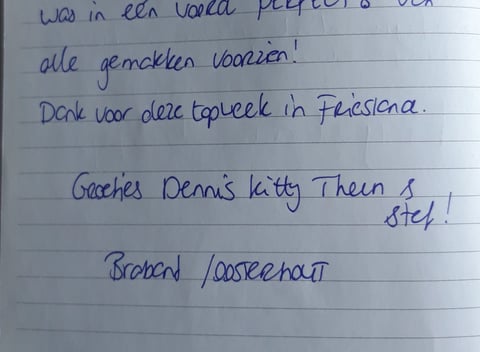 was in een woord perfect & van
alle gemakken voorzien!
Dank voor deze topweek in Friesland.
Groetjes Dennis Kitty Theun &
Stef!
Braband / Oosterhout